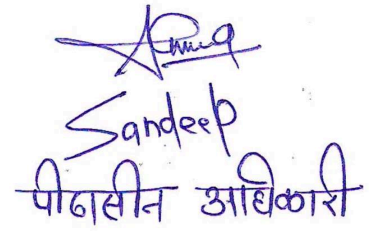 Sandeep
पीठासीन अधिकारी